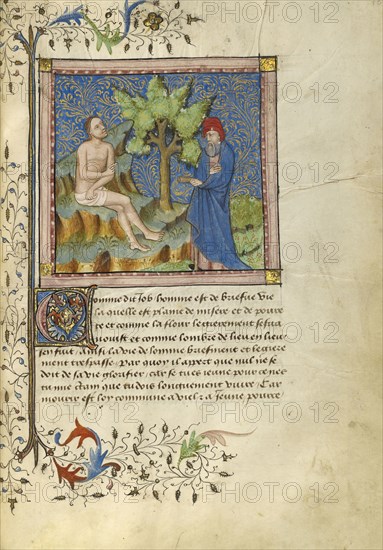 Comme dit Job homme est de briefue vie
la quelle est plaine de misere et de pourete
et comme la flour legierement sesua
nouist et comme lombre de lieu en lieu
sen fuit Ainsi la vie de homme briefment et legiere
ment trespasse Par quoy il appert que nul ne se
doit de sa vie glorifier car se tu es jeune pour ce nes
tu mie certain que tu doies longuement viure Car
mourir est loy commune a viel z a jeune poure